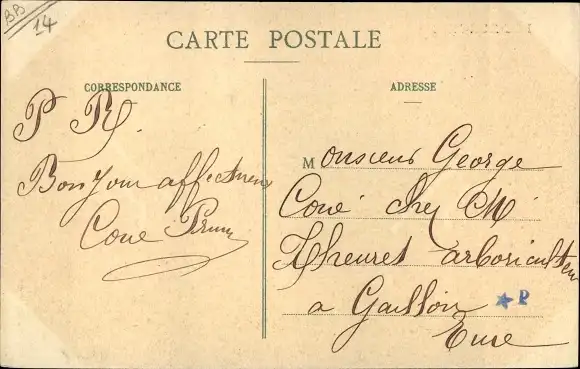 BB
14
CARTE POSTALE
CORRESPONDANCE
P R.
Bonjour affectueux
Coué
ADRESSE
Monsieur George
Coué chez Mr
Theuret arboriculteur
a Gaillon
Eure
P